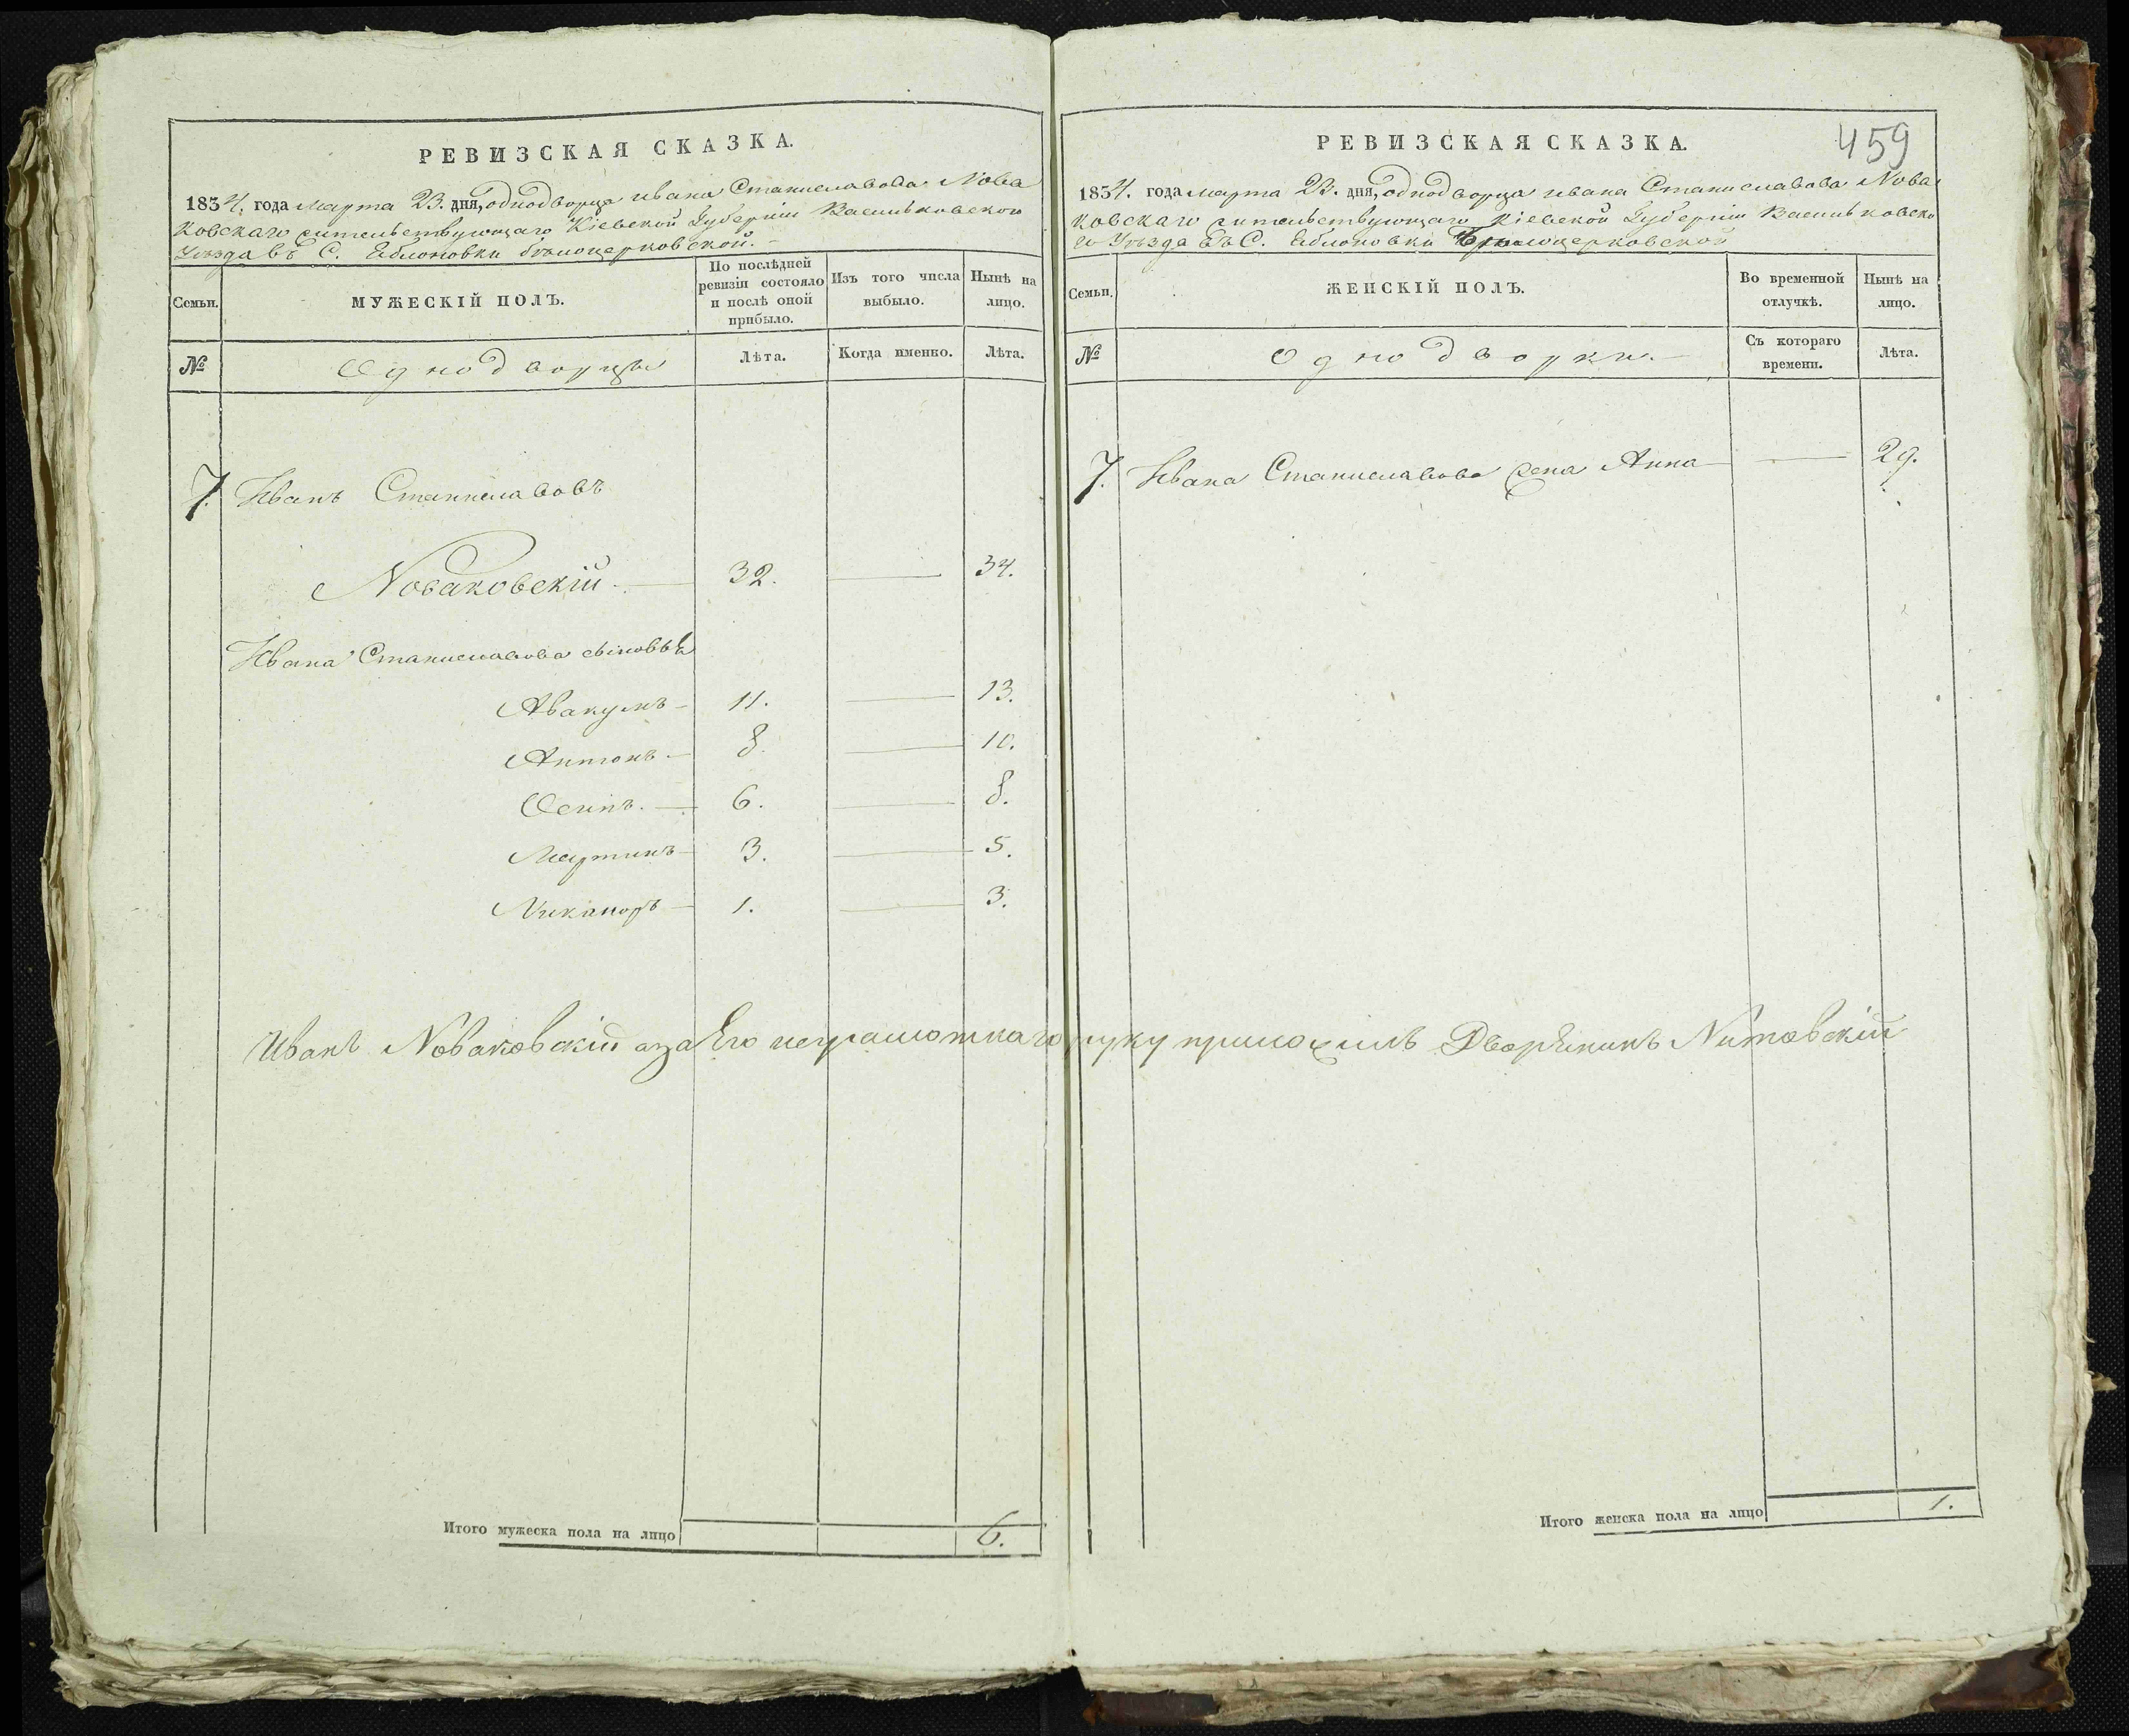 РЕВИЗСКАЯ СКАЗКА.
1834. года марта 23. дня, однодворца ивана Станиславова Нова
ковскаго жительствующаго Кіевской Губерніи Васильковского
Уезда въ С. Яблоновки белоцерковской.
Семьи.
МУЖЕСКІЙ ПОЛЪ.
По послѣдней ревизіи состояло и послѣ оной прибыло.
Изъ того числа выбыло.
Нынѣ на лицо.
№
Однодворцы
Лѣта.
Когда именно.
Лѣта.
7. Иванъ Станиславовъ
Новаковскій 32. 34.
Ивана Станиславова сыновья
Авакумъ 11. 13.
Антонъ 8. 10.
Осипъ. 6. 8.
Мартинъ 3. 5.
Никаноръ 1. 3.
Иванъ Новаковскій а за Его неграмотнаго руку приложилъ Дворянинъ Нитовскій
Итого мужеска пола на лицо 6.
459
РЕВИЗСКАЯ СКАЗКА.
1834. года марта 23. дня, однодворца ивана Станиславова Нова
ковскаго жительствующаго Кіевской Губерніи Васильковско
го Уезда въ С. Яблоновки Белоцерковской
Семьи.
ЖЕНСКІЙ ПОЛЪ.
Во временной отлучкѣ.
Нынѣ на лицо.
№
Однодворки.
Съ котораго времени.
Лѣта.
7. Ивана Станиславова жена Анна 29.
Итого женска пола на лицо 1.